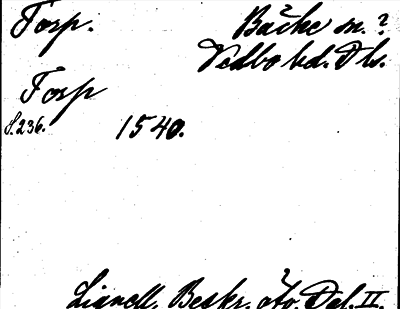 Torp. Bäcke sn.?
Vedbo hd. Dls.
Torp
S.236. 1540.
Lignell, Beskr. öfv. Dal. II.